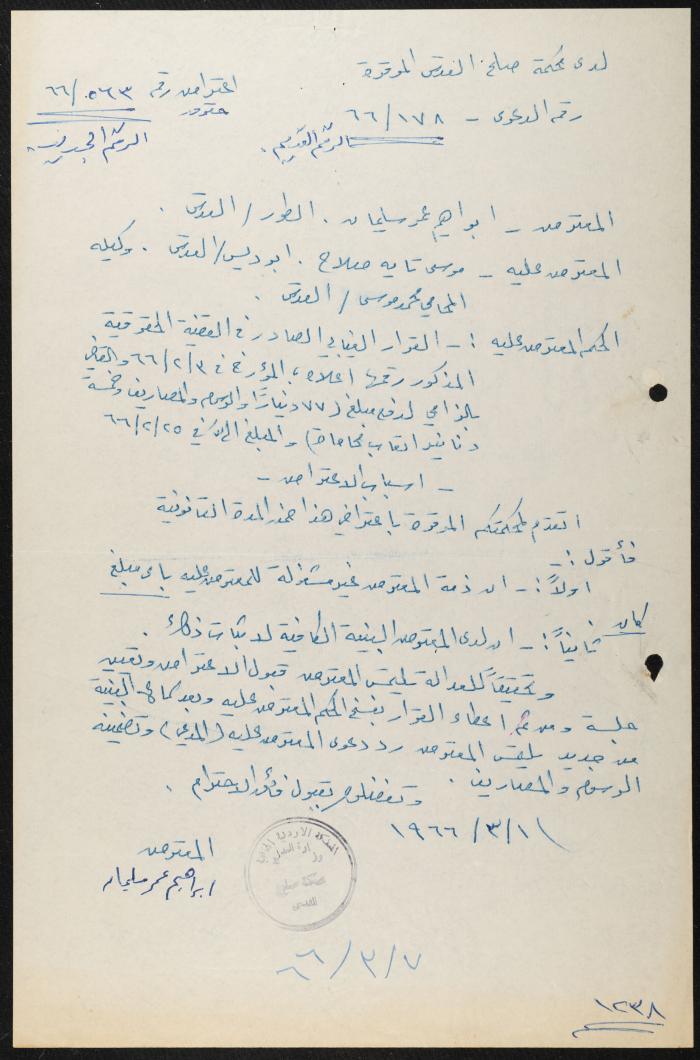 لدى محكمة صلح القدس الموقرة
اعتراض رقم ٥٦٣/٦٦
حقوق
رقم الدعوى - ١٧٨/٦٦
الرقم القديم.
الرقم الجديد.
المعترض - ابراهيم عمر سليمان . الطور / القدس .
المعترض عليه - موسى تايه صلاح . ابو ديس/القدس . وكيله
المحامي محمد موسى / القدس .
الحكم المعترض عليه :- القرار الغيابي الصادر في القضية الحقوقية
المذكور رقمها اعلاه ، المؤرخ في ٣/٢/٦٦ والقاضي
بالزامي لدفع مبلغ (٧٧ دينارًا والرسوم والمصاريف وخمسة
دنانير اتعاب محاماة) والمبلغ الي في ٢٥/٢/٦٦
- اسباب الاعتراض -
اتقدم لمحكمتكم الموقرة باعتراضي هذا ضمن المدة القانونية
فأقول :-
اولاً :- ان ذمة المعترض غير مشغولة للمعترض عليه باي مبلغ
كان .
ثانياً :- ان لدى المعترض البينة الكافية لاثبات ذلك .
وتحقيقاً للعدالة يلتمس المعترض قبول الاعتراض وتعيين
جلسة ومن ثم اعطاء القرار بفسخ الحكم المعترض عليه وبعد سماع البينة
من جديد يلتمس المعترض رد دعوى المعترض عليه (المدعي) وتضمينه
الرسوم والمصاريف .
وتفضلوا بقبول فائق الاحترام .
١/٣/١٩٦٦
المعترض
ابراهيم عمر سليمان
المملكة الاردنية الهاشمية
وزارة العدلية
محكمة صلح
القدس
٧/٣/٦٦
١٢٣٨